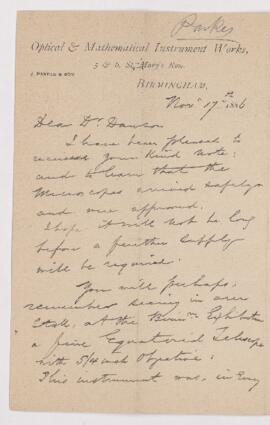 Parkes
Optical & Mathematical Instrument Works,
5 & 6, St. Mary's Row.
J. PARKES & SON
BIRMINGHAM,
Nov. 17th 1886
Dear Dr. Dawson
I have been pleased to
receive your kind note:
and to learn that the
Microscopes arrived safely
and were approved.
I hope it will not be long
before a further supply
will be required.
You will perhaps,
remember seeing in our
Stall, at the Birm. Exhibition
a fine Equatorial Telescope
with 5/4 inch Objective:
This instrument was, in Every